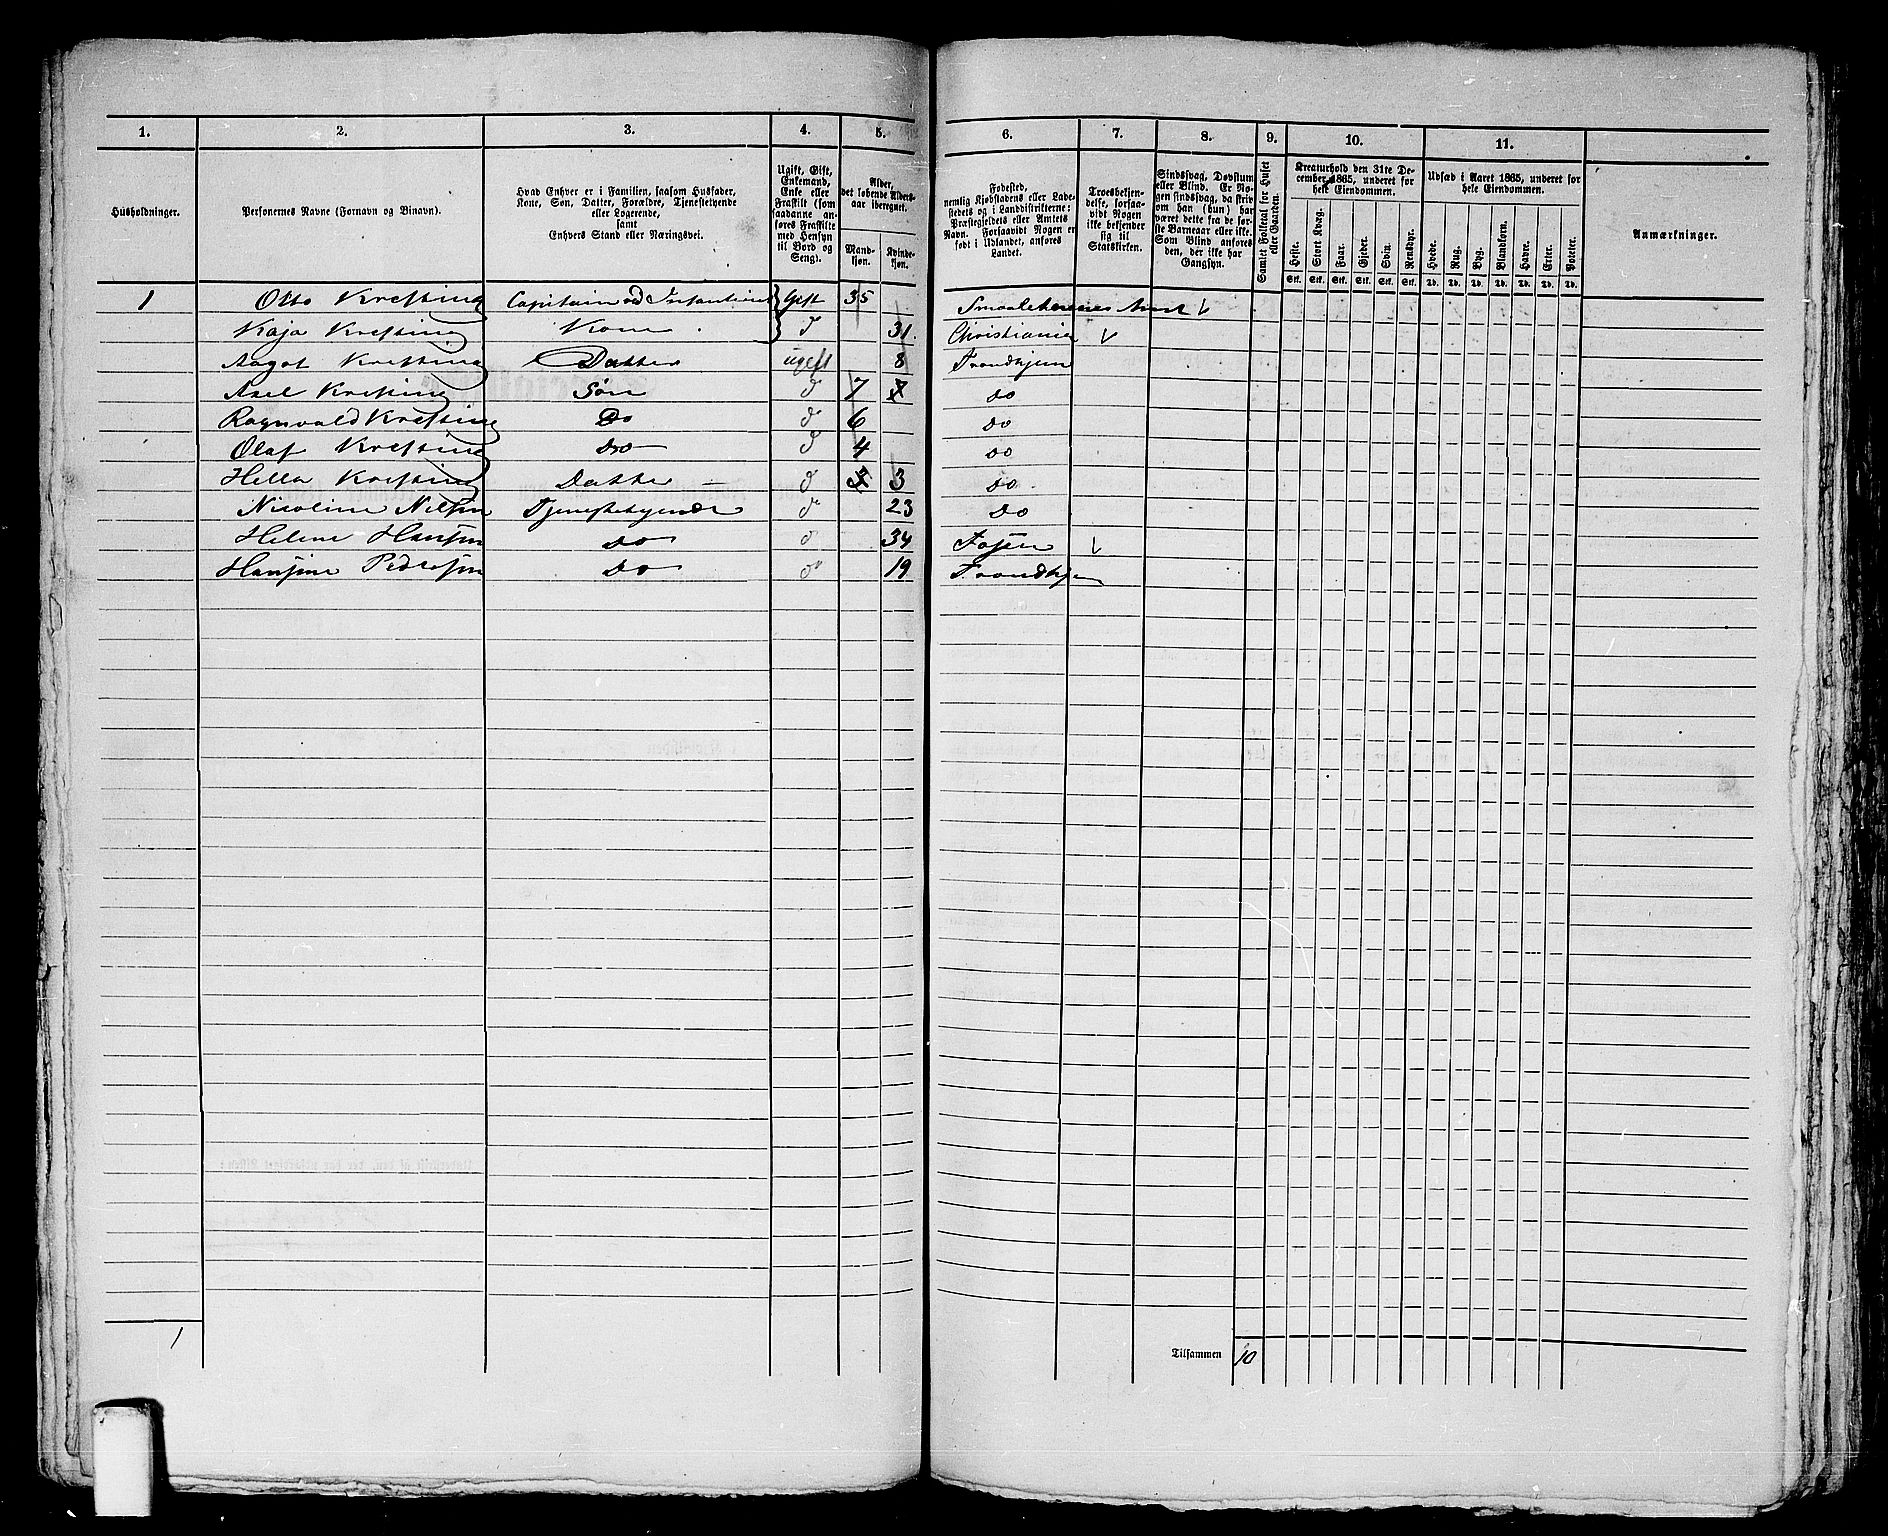 1. 2. 3. 4. 5. 6. 7. 8. 9. 10. 11.
Husholdninger.
Personernes Navne (Fornavn og Binavn).
Hvad Enhver er i Familien, saasom Husfader,
Kone, Søn, Datter, Forældre, Tjenestetyende
eller Logerende,
samt
Enhvers Stand eller Næringsvei.
Ugift, Gift,
Enkemand,
Enke eller
Fraskilt (som
saadanne an-
føres Fraskilte
med Hensyn
til Bord og
Seng).
Alder,
det løbende Alders-
aar iberegnet.
Mand-
kjøn.
Kvinde-
kjøn.
Fødested,
nemlig Kjøbstadens eller Lade-
stedets og i Landdistrikterne:
Præstegjeldets eller Amtets
Navn. Forsaavidt Nogen er
født i Udlandet, anføres
Landet.
Troesbekjen-
delse, forsaa-
vidt Nogen
ikke bekjender
sig til
Statskirken.
Sindssvag, Døvstum
eller Blind. Er No-
gen sindssvag, da skriv
om han (hun) har
været dette fra de før-
ste Barneaar eller ikke.
Som Blind anføres
den, der ikke har
Gangsyn.
Samlet Folketal for Huset
eller Gaarden.
Kreaturhold den 31te De-
cember 1865, underet for
hele Eiendommen.
Heste. Stort Kvæg. Faar. Gjeder. Svin. Rensdyr.
Stk. Stk. Stk. Stk. Stk. Stk.
Udsæd i Aaret 1865, underet for
hele Eiendommen.
Hvede. Rug. Byg. Blandkorn. Havre. Erter. Poteter.
Td. Td. Td. Td. Td. Td. Td.
Anmærkninger.
1 Otto Krefting Capitain ved Infanteriet Gift 35 Smaalehnenes Amt
Kaja Krefting Kone d 31. Christiania
Aagot Krefting Datter ugift 8 Trondhjem
Axel Krefting Søn d 7 do
Ragnvald Krefting Do d 6 do
Olaf Krefting do d 4 do
Hella Krefting Datter d 3 do
Nicoline Nilsen Tjenestetyende d 23 Do
Helene Hansen do d 34 Fosen
Hansine Pedersen do d 19 Trondhjem
1
Tilsammen 10